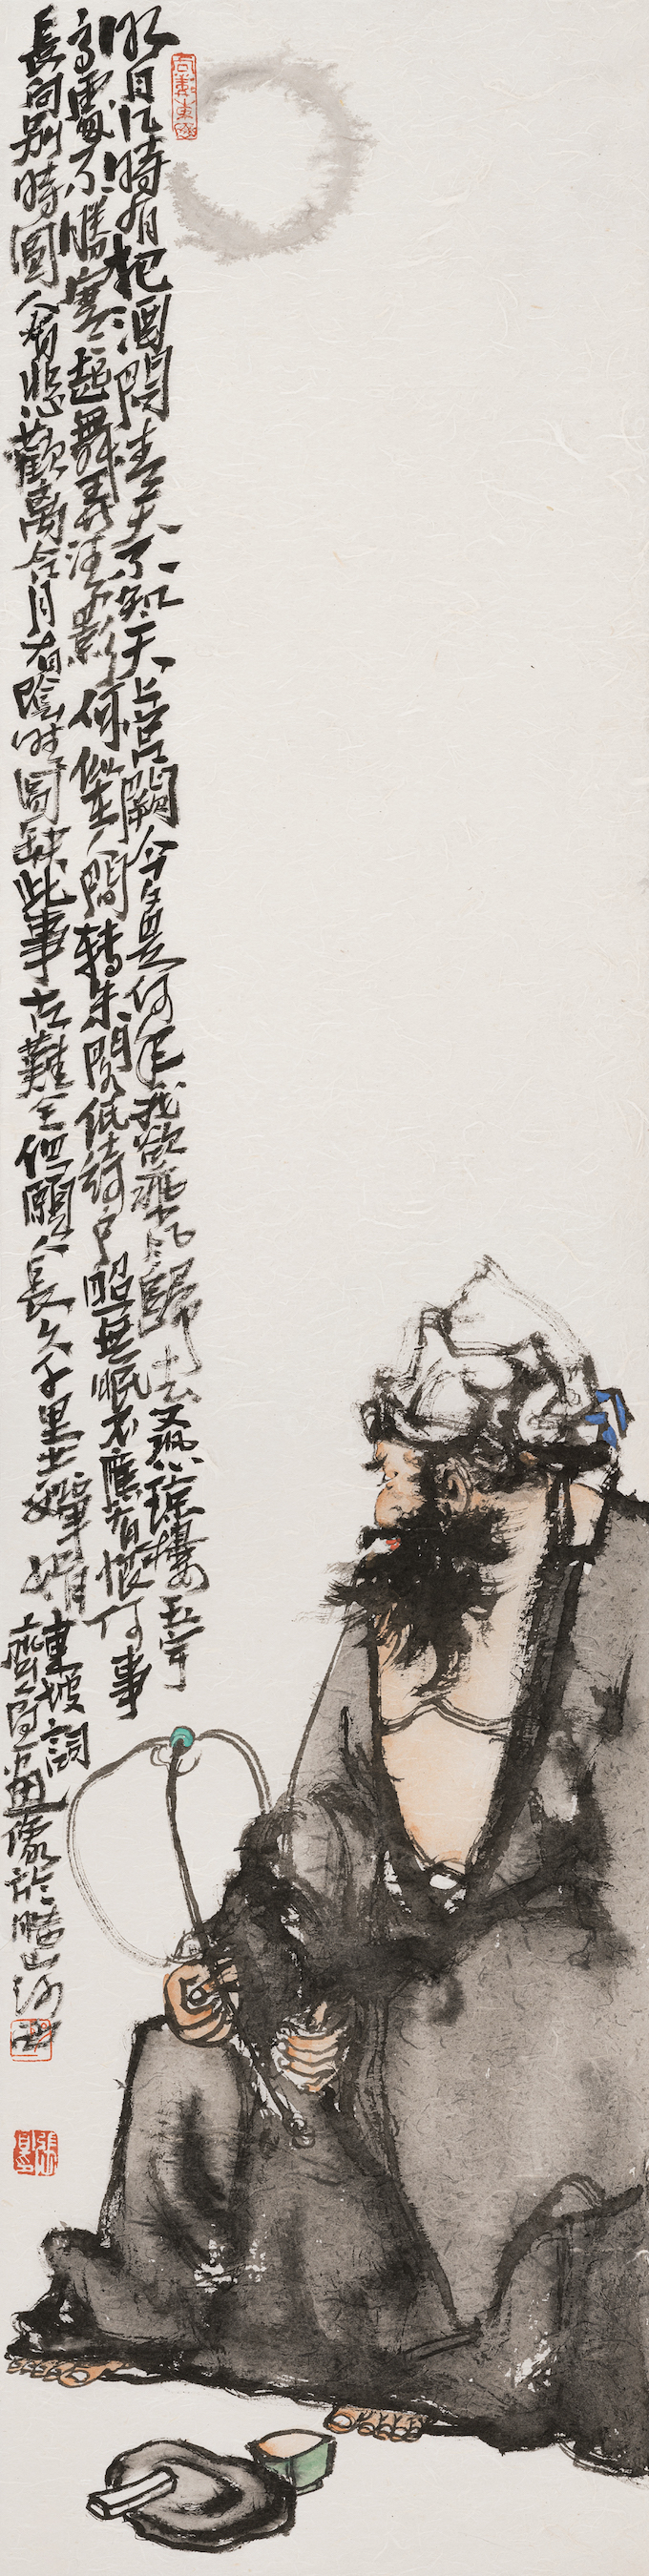 明月几時有把酒問青天不知天上宮闕今夕是何年我欲乘风歸去又恐瓊樓玉宇
高處不勝寒起舞弄清影何似在人間轉朱閣低綺户照無眠不應有恨何事
長向别時圓人有悲歡離合月有陰晴圓缺此事古難全但願人長久千里共嬋娟
東坡詞
畫像於